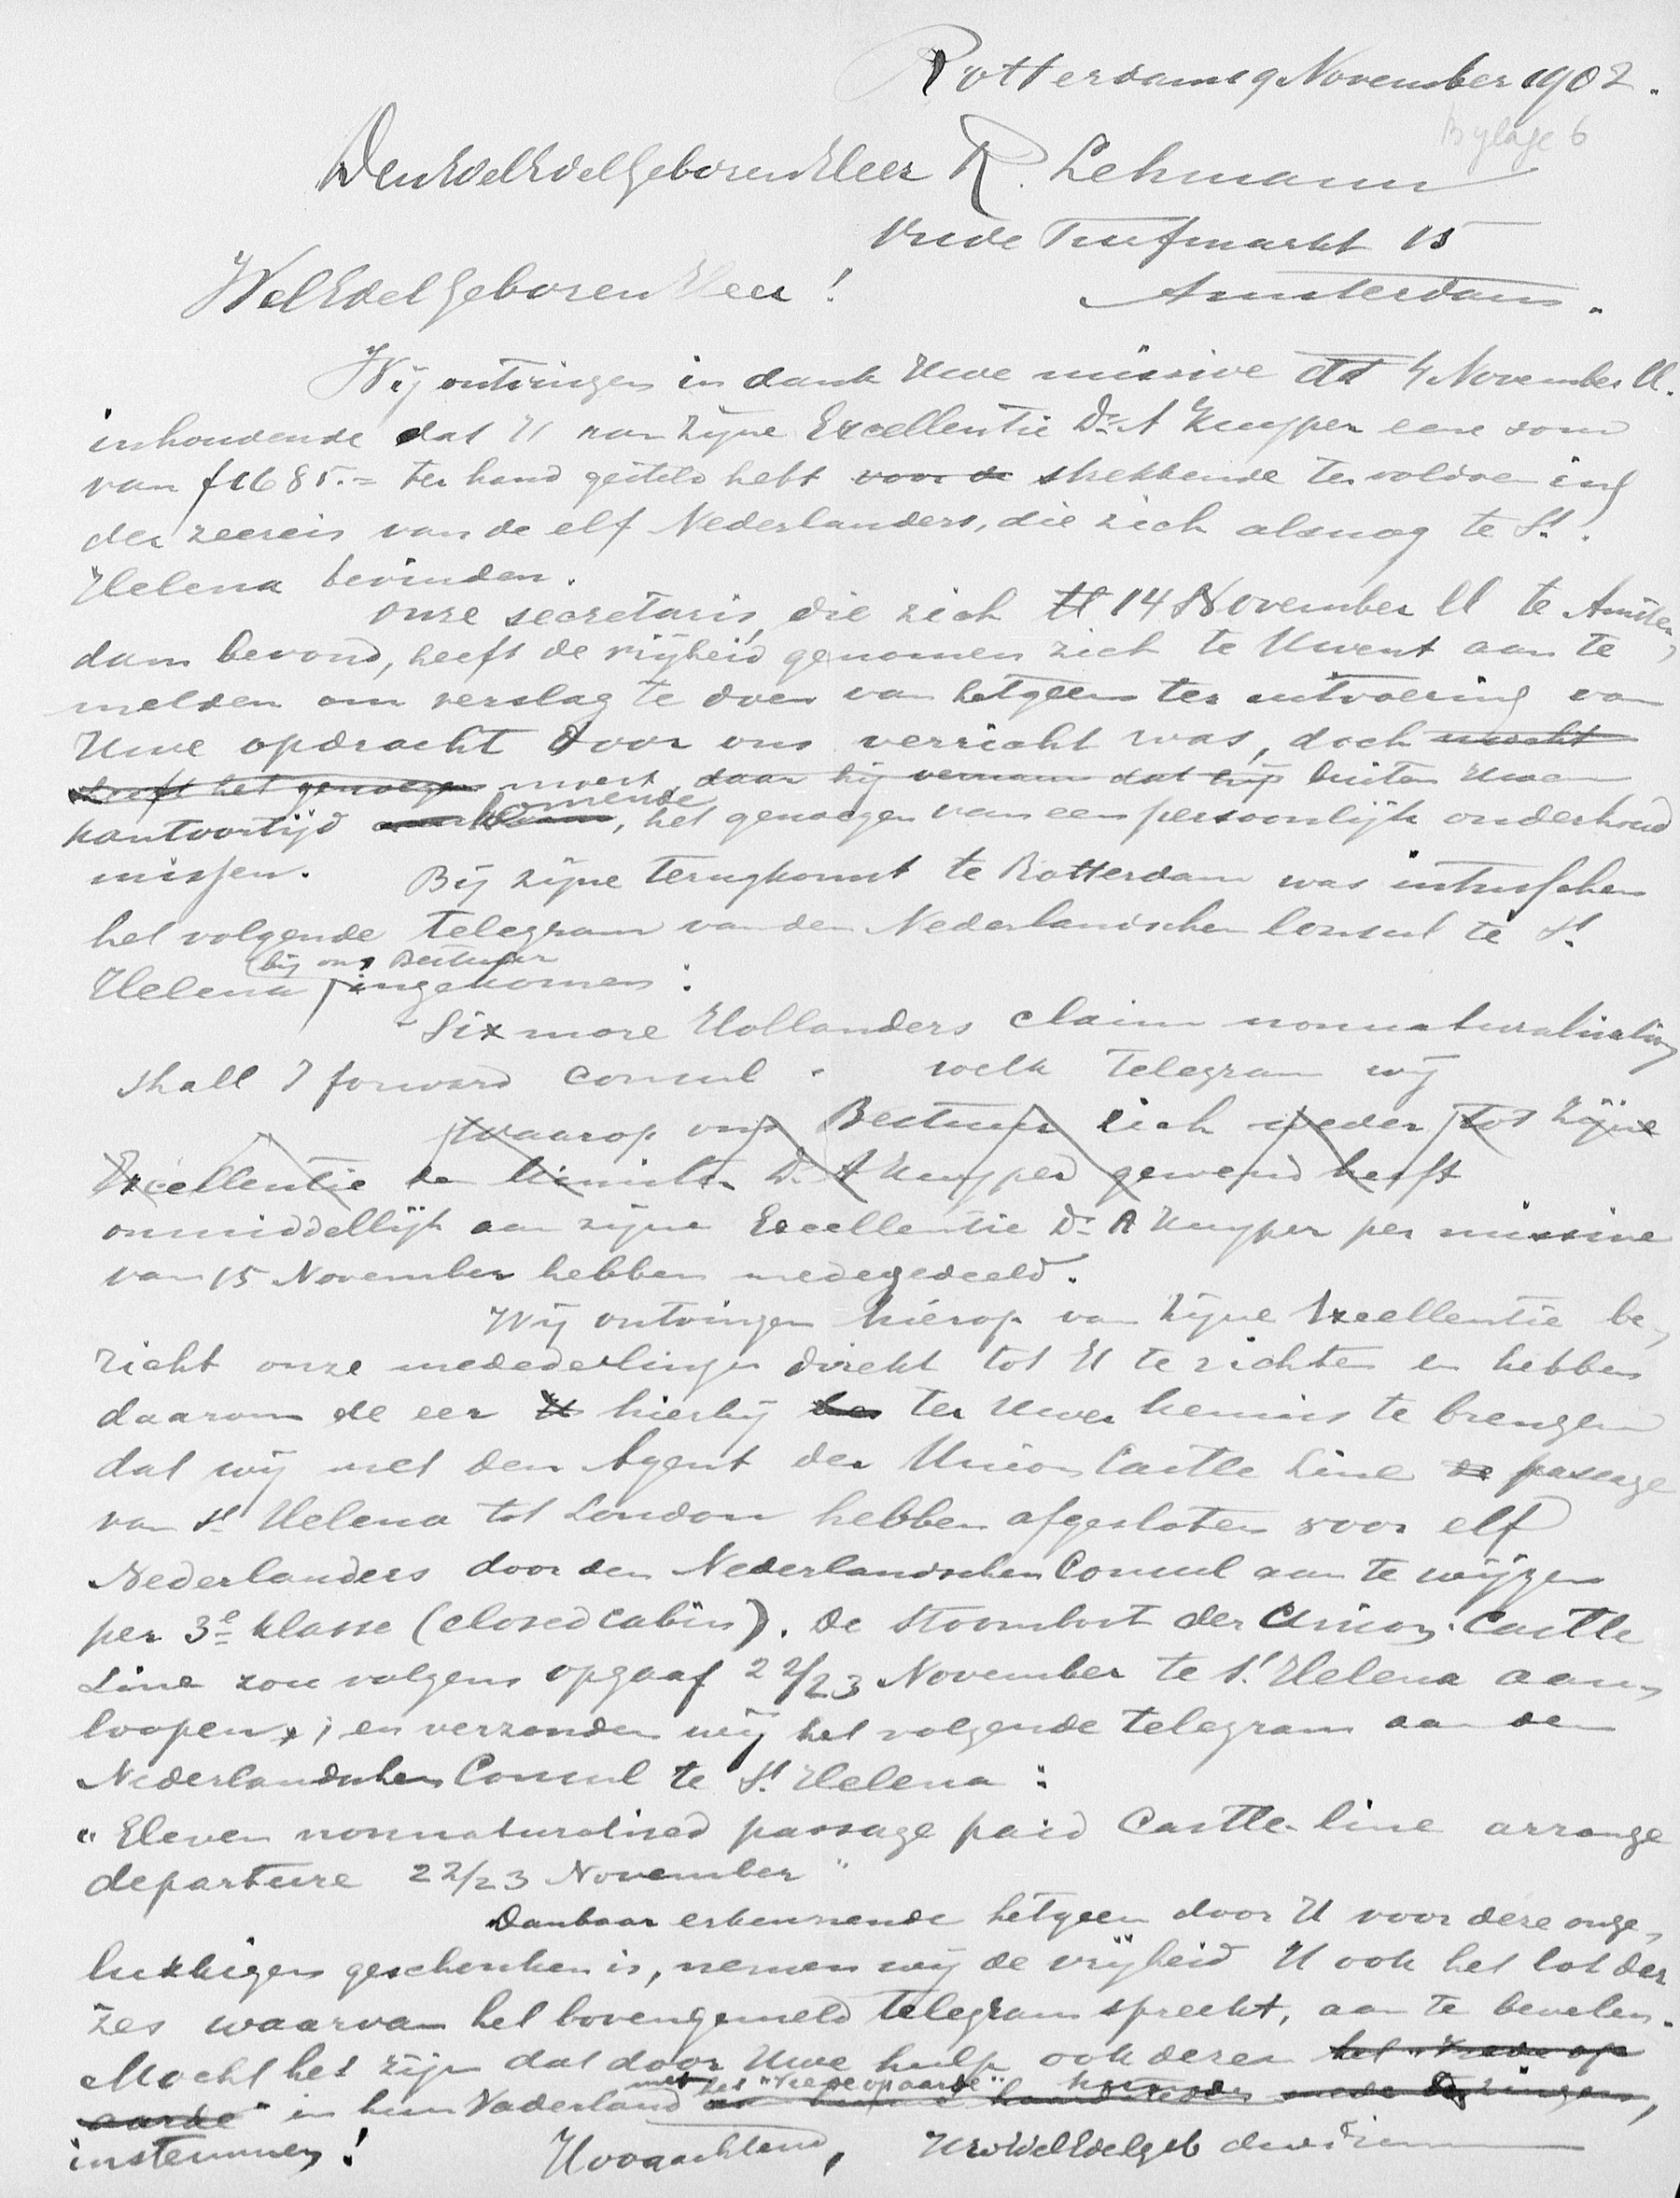 Rotterdam 19 November 1902.
Bylage 6
Den WelEdelGeboren Heer R. Lehmann
Oude Turfmarkt 15
WelEdelGeboren Heer!
Amsterdam.
Wij ontvingen in dank Uwe missive dd 4 November ll.
inhoudende dat U van Zijne Excellentie Dr. A Kuyper eene som
van f 1685.= ter hand gesteld hebt voor de strekkende ter voldoening
der zeereis van de elf Nederlanders, die zich alsnog te St.
Helena bevinden.
Onze secretaris, die zich 14 November ll te Amster-
dam bevond, heeft de vrijheid genomen zich te Uwent aan te
melden om verslag te doen van hetgeen ter uitvoering van
Uwe opdracht door ons verricht was, doch mocht
heeft het genoegen moest, daar hij vernam dat hij buiten Uwen
kantoortijd komende, het genoegen van een persoonlijk onderhoud
missen.
Bij zijne terugkomst te Rotterdam was intusschen
het volgende telegram van den Nederlandschen Consul te St.
Helena (bij ons Bestuur ingekomen:
"Six more Hollanders claim nonnaturalisation
shall I forward consul" welk telegram wij
waarop ons Bestuur zich weder tot Zijne
Excellentie de Minister Dr. A Kuyper gewend heeft
onmiddellijk aan zijne Excellentie Dr. A Kuyper per missive
van 15 November hebben medegedeeld.
Wij ontvingen hierop van Zijne Excellentie be-
richt onze mededeelingen direkt tot U te richten en hebben
daarom de eer U hierbij ter Uwer kennis te brengen
dat wij met den Agent der Union Castle Line de passage
van St. Helena tot London hebben afgesloten voor elf
Nederlanders door den Nederlandschen Consul aan te wijzen
per 3e klasse (closed cabin). De stoomboot der Union-Castle
Line zou volgens opgaaf 22/23 November te St. Helena aan-
loopen; en verzonden wij het volgende telegram aan den
Nederlandschen Consul te St. Helena:
"Eleven nonnaturalised passage paid Castle-line arrange
departure 22/23 November"
Dankbaar erkennende hetgeen door U voor deze onge-
lukkigen geschonken is, nemen wij de vrijheid U ook het lot der
zes waarvan het bovengemeld telegram spreekt, aan te bevelen.
Mocht het zijn dat door Uwe hulp ook dezen het "vrede op
aarde" in hun Vaderland met het "Vrede op aarde" kunnen mede zingen,
instemmen!
Hoogachtend, UwWelEdelgeb dwdienaren